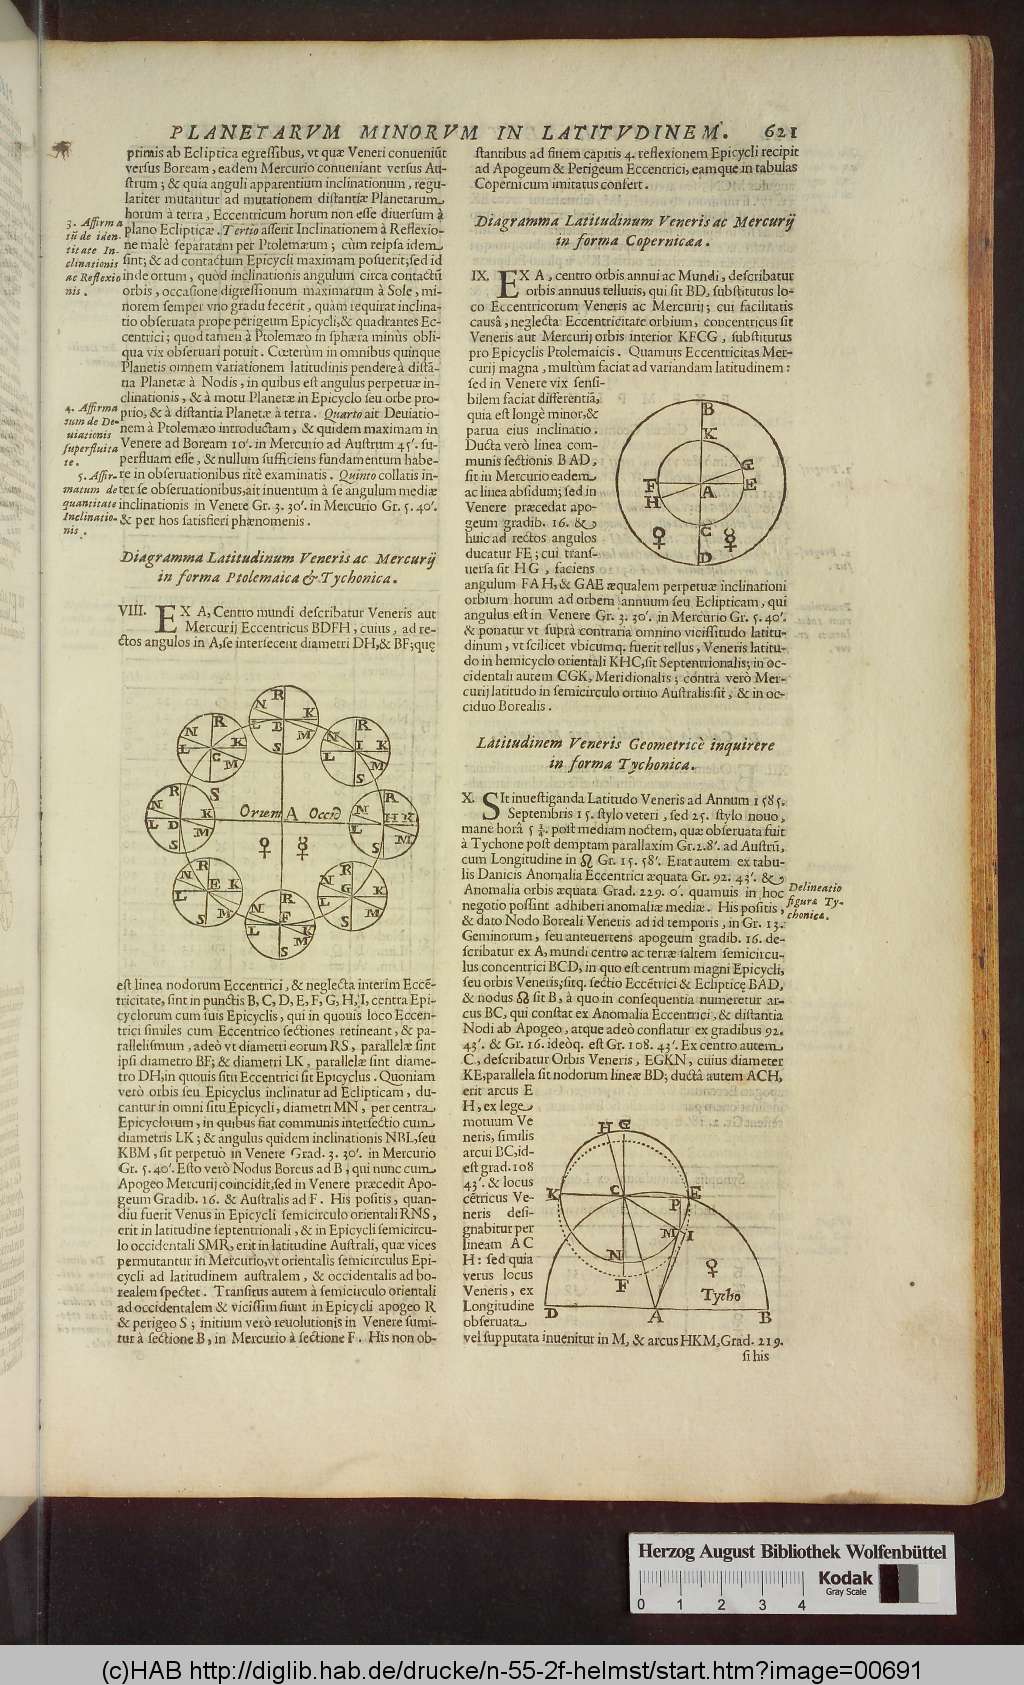 PLANETARVM MINORVM IN LATITVDINEM. 621
primis ab Ecliptica egressibus, vt quæ Veneri conueniūt
versus Boream, eadem Mercurio conueniant versus Au-
strum; & quia anguli apparentium inclinationum, regu-
lariter mutantur ad mutationem distantiæ Planetarum
horum à terra, Eccentricum horum non esse diuersum à
plano Eclipticæ. Tertio asserit Inclinationem à Reflexio-
ne malè separatam per Ptolemæum; cùm reipsa idem
sint; & ad contactum Epicycli maximam posuerit; sed id
inde ortum, quòd inclinationis angulum circa contactū
orbis, occasione digressionum maximarum à Sole, mi-
norem semper vno gradu fecerit, quàm requirat inclina-
tio obseruata prope perigeum Epicycli, & quadrantes Ec-
centrici; quod tamen à Ptolemæo in sphæra minùs obli-
qua vix obseruari potuit. Cœterùm in omnibus quinque
Planetis omnem variationem latitudinis pendere à distā-
tia Planetæ à Nodis, in quibus est angulus perpetuæ in-
clinationis, & à motu Planetæ in Epicyclo seu orbe pro-
prio, & à distantia Planetæ à terra. Quarto ait Deuiatio-
nem à Ptolemæo introductam, & quidem maximam in
Venere ad Boream 10'. in Mercurio ad Austrum 45'. su-
perfluam esse, & nullum sufficiens fundamentum habe-
re in obseruationibus ritè examinatis. Quinto collatis in-
ter se obseruationibus, ait inuentum à se angulum mediæ
inclinationis in Venere Gr. 3. 30'. in Mercurio Gr. 5. 40'.
& per hos satisfieri phænomenis.
3. Affirma
tiū de iden-
titate In-
clinationis
ac Reflexio
nis.
4. Affirma
tum de De-
uiationis
superfluita
te.
5. Affir-
matum de
quantitate
Inclinatio-
nis.
Diagramma Latitudinum Veneris ac Mercurij
in forma Ptolemaica & Tychonica.
VIII. EX A, Centro mundi describatur Veneris aut
Mercurij Eccentricus BDFH, cuius, ad re-
ctos angulos in A, se intersecent diametri DH, & BF; quę
R N K L B M S
R N K L C M S
R N K L I M S
R N K L D M S
Oriens A Occid
♀ ☿
R N H K M S
R N E K L M S
R N K L G M S
R N K L F M S
est linea nodorum Eccentrici, & neglecta interim Eccē-
tricitate, sint in punctis B, C, D, E, F, G, H, I, centra Epi-
cyclorum cum suis Epicyclis, qui in quouis loco Eccen-
trici similes cum Eccentrico sectiones retineant, & pa-
rallelismum, adeò vt diametri eorum RS, parallelæ sint
ipsi diametro BF; & diametri LK, parallelæ sint diame-
tro DH, in quouis situ Eccentrici sit Epicyclus. Quoniam
verò orbis seu Epicyclus inclinatur ad Eclipticam, du-
cantur in omni situ Epicycli, diametri MN, per centra
Epicyclorum, in quibus fiat communis intersectio cum
diametris LK; & angulus quidem inclinationis NBL, seu
KBM, sit perpetuò in Venere Grad. 3. 30'. in Mercurio
Gr. 5. 40'. Esto verò Nodus Boreus ad B, qui nunc cum
Apogeo Mercurij coincidit, sed in Venere præcedit Apo-
geum Gradib. 16. & Australis ad F. His positis, quan-
diu fuerit Venus in Epicycli semicirculo orientali RNS,
erit in latitudine septentrionali, & in Epicycli semicircu-
lo occidentali SMR, erit in latitudine Australi, quæ vices
permutantur in Mercurio, vt orientalis semicirculus Epi-
cycli ad latitudinem australem, & occidentalis ad bo-
realem spectet. Transitus autem à semicirculo orientali
ad occidentalem & vicissim fiunt in Epicycli apogeo R
& perigeo S; initium verò reuolutionis in Venere sumi-
tur à sectione B, in Mercurio à sectione F. His non ob-
stantibus ad finem capitis 4. reflexionem Epicycli recipit
ad Apogeum & Perigeum Eccentrici, eamque in tabulas
Copernicum imitatus confert.
Diagramma Latitudinum Veneris ac Mercurij
in forma Copernicæa.
IX. EX A, centro orbis annui ac Mundi, describatur
orbis annuus telluris, qui sit BD, substitutus lo-
co Eccentricorum Veneris ac Mercurij; cui facilitatis
causâ, neglecta Eccentricitate orbium, concentricus sit
Veneris aut Mercurij orbis interior KFCG, substitutus
pro Epicyclis Ptolemaicis. Quamuis Eccentricitas Mer-
curij magna, multùm faciat ad variandam latitudinem:
sed in Venere vix sensi-
bilem faciat differentiā,
quia est longè minor, &
parua eius inclinatio.
Ducta verò linea com-
munis sectionis BAD,
sit in Mercurio eadem
ac linea absidum; sed in
Venere præcedat apo-
geum gradib. 16. &
huic ad rectos angulos
ducatur FE; cui trans-
uersa sit HG, faciens
angulum FAH, & GAE æqualem perpetuæ inclinationi
orbium horum ad orbem annuum seu Eclipticam, qui
angulus est in Venere Gr. 3. 30'. in Mercurio Gr. 5. 40'.
& ponatur vt suprà contraria omnino vicissitudo latitu-
dinum, vt scilicet vbicumq. fuerit tellus, Veneris latitu-
do in hemicyclo orientali KHC, sit Septentrionalis; in oc-
cidentali autem CGK, Meridionalis; contrà verò Mer-
curij latitudo in semicirculo ortiuo Australis sit, & in oc-
ciduo Borealis.
B
K
G
F E
A
H
C
♀ ☿
D
Latitudinem Veneris Geometricè inquirere
in forma Tychonica.
X. SIt inuestiganda Latitudo Veneris ad Annum 1585.
Septembris 15. stylo veteri, sed 25. stylo nouo,
mane horâ 5 ¼. post mediam noctem, quæ obseruata fuit
à Tychone post demptam parallaxim Gr. 2. 8'. ad Austrū,
cum Longitudine in ♌ Gr. 15. 58'. Erat autem ex tabu-
lis Danicis Anomalia Eccentrici æquata Gr. 92. 43'. &
Anomalia orbis æquata Grad. 229. 0'. quamuis in hoc
negotio possint adhiberi anomaliæ mediæ. His positis,
& dato Nodo Boreali Veneris ad id temporis, in Gr. 13.
Geminorum, seu anteuertens apogeum gradib. 16. de-
scribatur ex A, mundi centro ac terræ saltem semicircu-
lus concentrici BCD, in quo est centrum magni Epicycli,
seu orbis Veneris; sitq. sectio Eccētrici & Eclipticę BAD,
& nodus ☊ sit B, à quo in consequentia numeretur ar-
cus BC, qui constat ex Anomalia Eccentrici, & distantia
Nodi ab Apogeo, atque adeò conflatur ex gradibus 92.
43'. & Gr. 16. ideòq. est Gr. 108. 43'. Ex centro autem
C, describatur Orbis Veneris, EGKN, cuius diameter
KE, parallela sit nodorum lineæ BD; ductâ autem ACH,
erit arcus E
H, ex lege
motuum Ve
neris, similis
arcui BC, id-
est grad. 108
43'. & locus
cētricus Ve-
neris desi-
gnabitur per
lineam AC
H: sed quia
verus locus
Veneris, ex
Longitudine
obseruata
vel supputata inuenitur in M, & arcus HKM, Grad. 219.
si his
Delineatio
figura Ty-
chonica.
H G
K C E
P
M I
N
F ♀
Tycho
D A B
Herzog August Bibliothek Wolfenbüttel
0 1 2 3 4
Kodak
Gray Scale
(c)HAB http://diglib.hab.de/drucke/n-55-2f-helmst/start.htm?image=00691